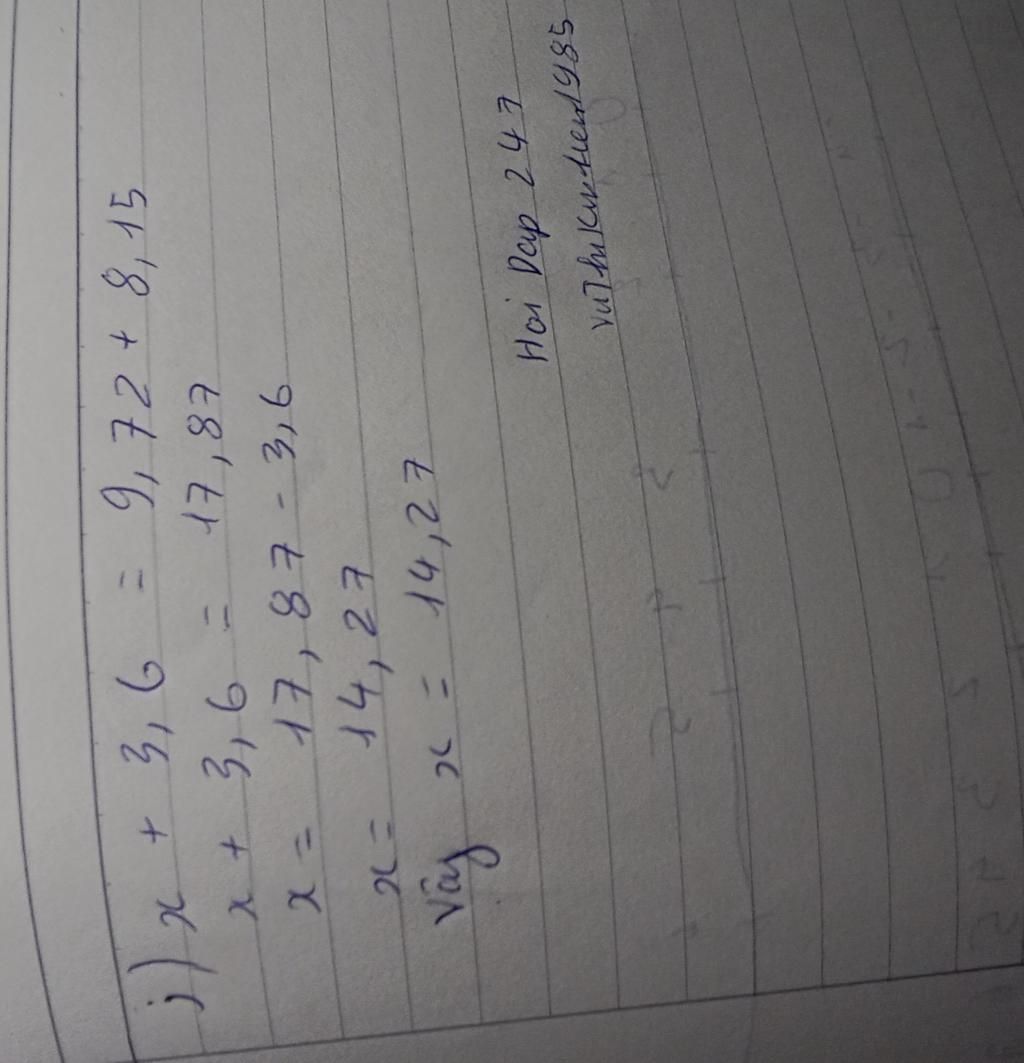 j) x + 3,6 = 9,72 + 8,15
x + 3,6 = 17,87
x = 17,87 - 3,6
x = 14,27
Vậy x = 14,27
Hoi Dap 247